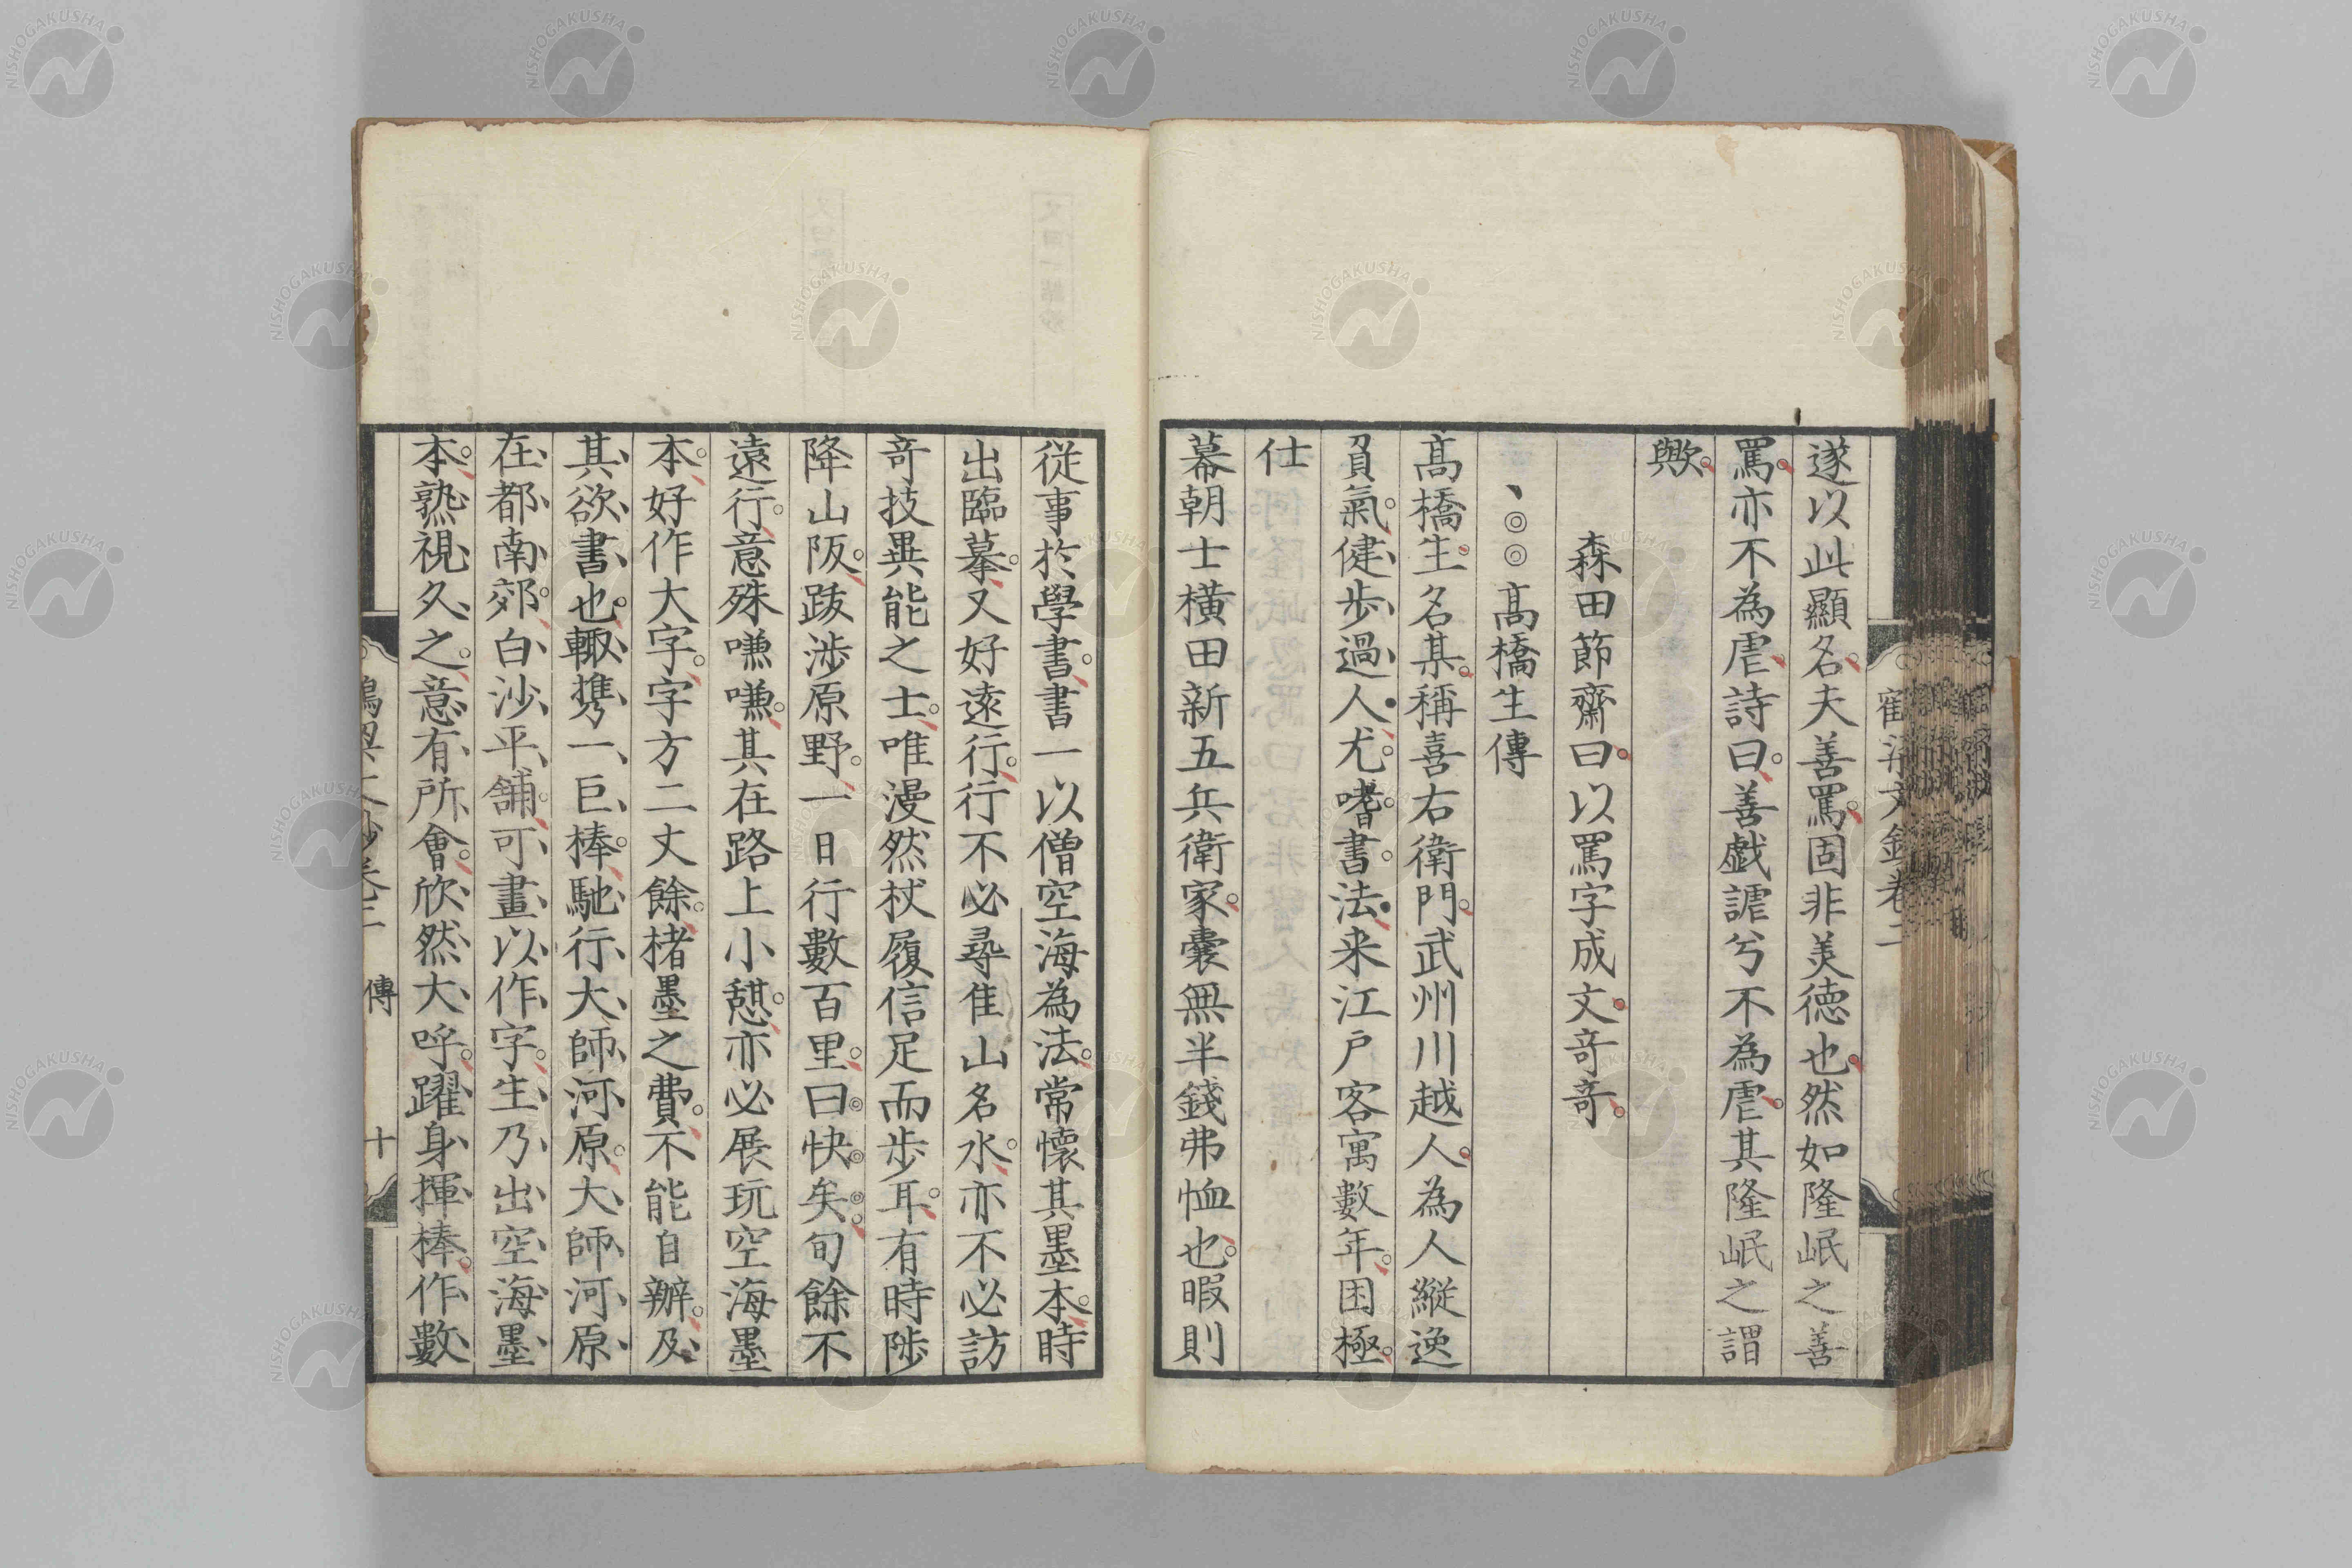 遂以此顯名夫善罵固非美德也然如隆岷之善
罵亦不為虐詩曰善戯謔兮不為虐其隆岷之謂
歟
森田節齋曰以罵字成文竒竒
、◎◎髙橋生傳
髙橋生名某稱喜右衛門武州川越人為人縱逸
負氣健歩過人尤嗜書法来江戸客寓數年困極
仕
幕朝士橫田新五兵衛家囊無半錢弗恤也暇則
従事於學書書一以僧空海為法常懷其墨本時
出臨摹又好遠行行不必尋佳山名水亦不必訪
竒技異能之士唯漫然杖履信足而歩耳有時陟
降山阪跋渉原野一日行數百里曰快矣旬餘不
遠行意殊嗛嗛其在路上小憇亦必展玩空海墨
本好作大字字方二丈餘楮墨之費不能自辦及
其欲書也輙携一巨棒馳行大師河原大師河原
在都南郊白沙平舗可畫以作字生乃出空海墨
本熟視久之意有所會欣然大呼躍身揮棒作數
傳
十
NISHOGAKUSHA